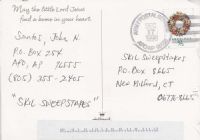 May the little Lord Jesus
find a home in your heart.
Santos, John N.
P.O. Box 254
APO, AP 96555
(805) 355-2405
"SKIL SWEEPSTAKES"
SKIL Sweepstakes
PO Box
New Milford, CT